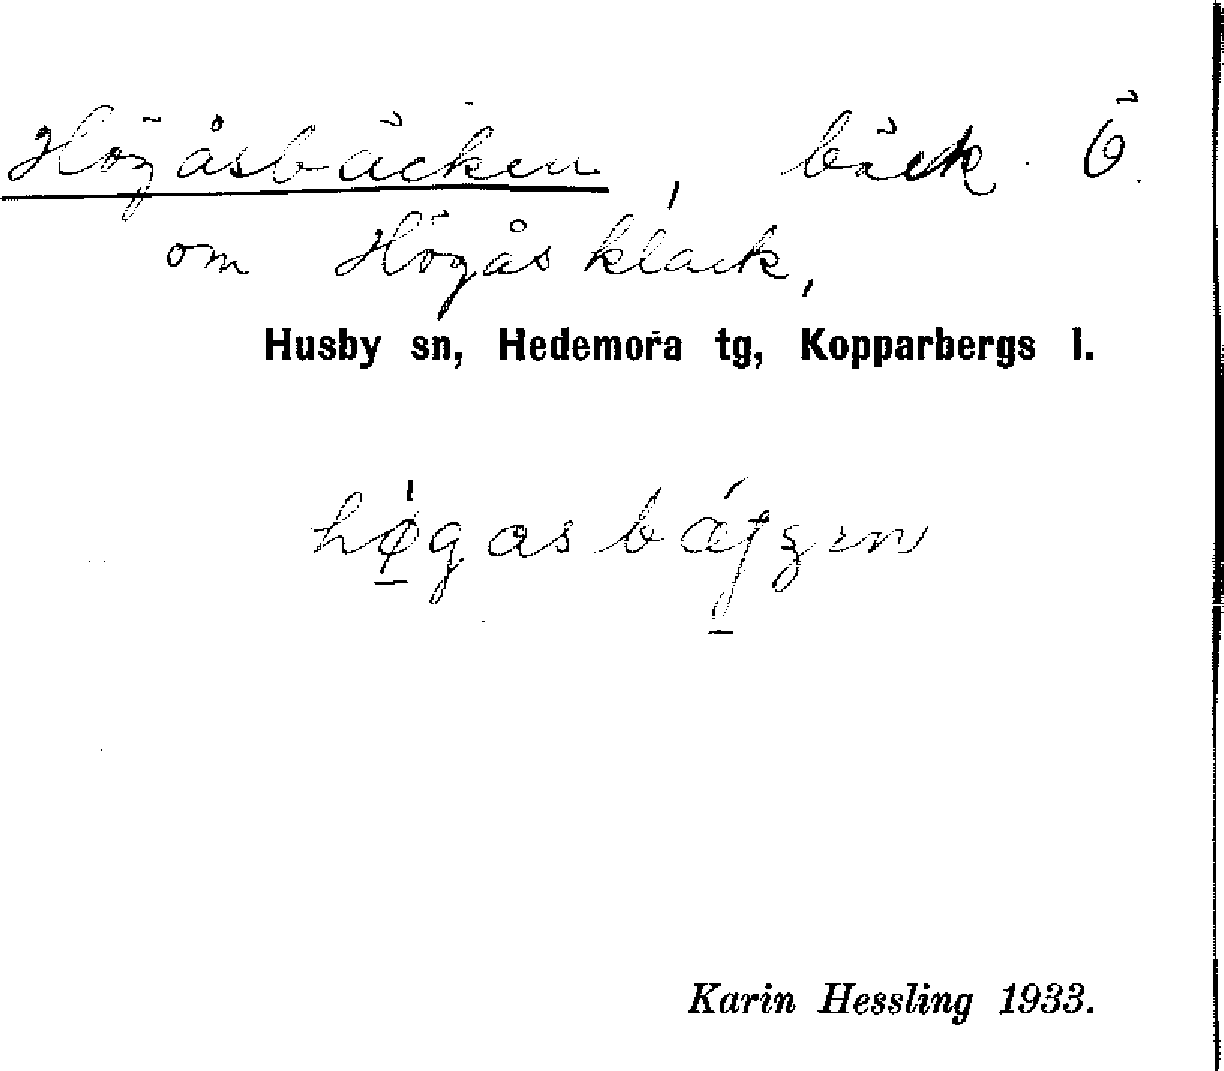 Högåsbäcken, bäck Ö.
om Högåsklack,
Husby sn, Hedemora tg, Kopparbergs l.
Karin Hessling 1933.